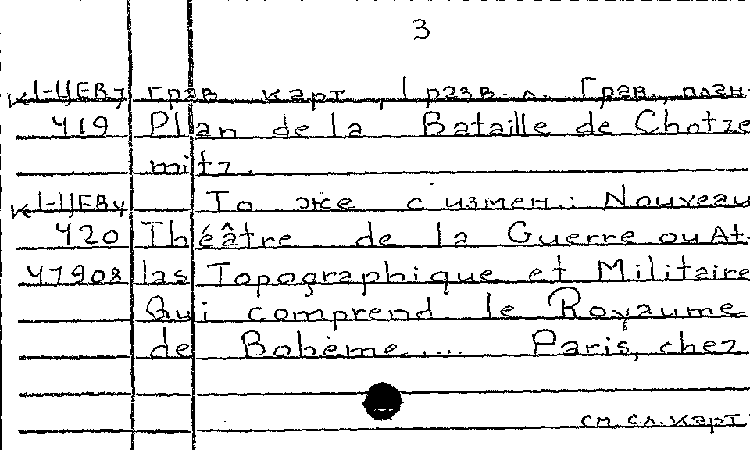 3
к1-ЦЕВ7 грав карт, 1 разв. л. Грав., план-
419 Plan de la Bataille de Chotze
mitz.
к1-ЦЕВ4 То же с измен.: Nouveau
420 Théâtre de la Guerre ou At-
47908 las Topographique et Militaire
Qui comprend le Royaume
de Bohème.... Paris, chez
см. сл. карт